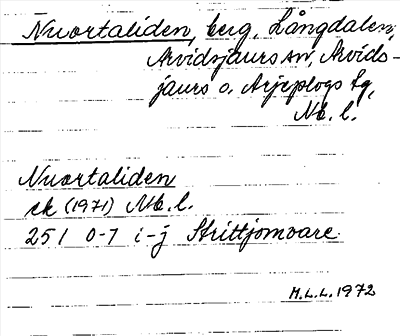 Nuortaliden, berg, Långdalen,
Arvidsjaurs sn, Arvids-
jaurs o. Arjeplogs tg,
Nb. l.
Nuortaliden
ek (1971) Nb. l.
25 I 0-7 i-j Strittjomvare
M.L.L. 1972